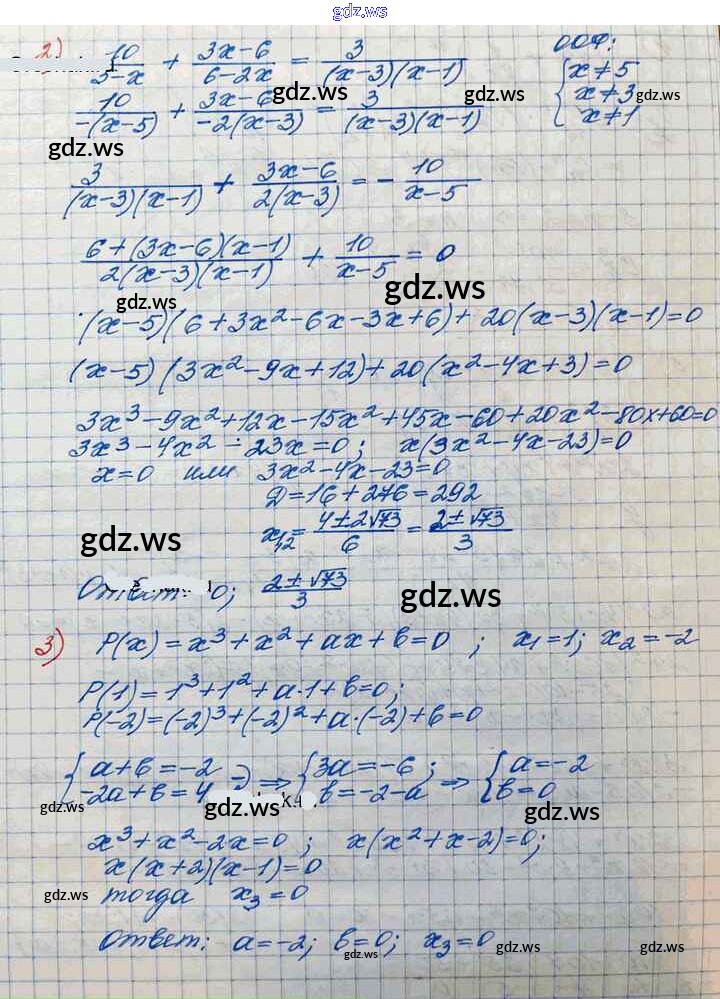 gdz.ws
2) 10/(5-x) + (3x-6)/(6-2x) = 3/((x-3)(x-1)) ООФ:
10/(-(x-5)) + (3x-6)/(-2(x-3)) = 3/((x-3)(x-1)) { x≠5 x≠3 x≠1
gdz.ws gdz.ws gdz.ws
gdz.ws
3/((x-3)(x-1)) + (3x-6)/(2(x-3)) = - 10/(x-5)
(6+(3x-6)(x-1))/(2(x-3)(x-1)) + 10/(x-5) = 0
gdz.ws gdz.ws
(x-5)(6+3x²-6x-3x+6)+20(x-3)(x-1)=0
(x-5)(3x²-9x+12)+20(x²-4x+3)=0
3x³-9x²+12x-15x²+45x-60+20x²-80x+60=0
3x³-4x²-23x=0; x(3x²-4x-23)=0
x=0 или 3x²-4x-23=0
Д=16+276=292
x₁,₂ = (4±2√73)/6 = (2±√73)/3
gdz.ws
Ответ: 0; (2±√73)/3
gdz.ws
3) P(x)=x³+x²+ax+b=0 ; x₁=1; x₂=-2
P(1)=1³+1²+a·1+b=0;
P(-2)=(-2)³+(-2)²+a·(-2)+b=0
{ a+b=-2 -2a+b=4 -) ⇒ { 3a=-6; b=-2-a ⇒ { a=-2 b=0
gdz.ws gdz.ws
x³+x²-2x=0 ; x(x²+x-2)=0;
x(x+2)(x-1)=0
тогда x₃=0
gdz.ws gdz.ws
Ответ: a=-2; b=0; x₃=0
gdz.ws gdz.ws gdz.ws